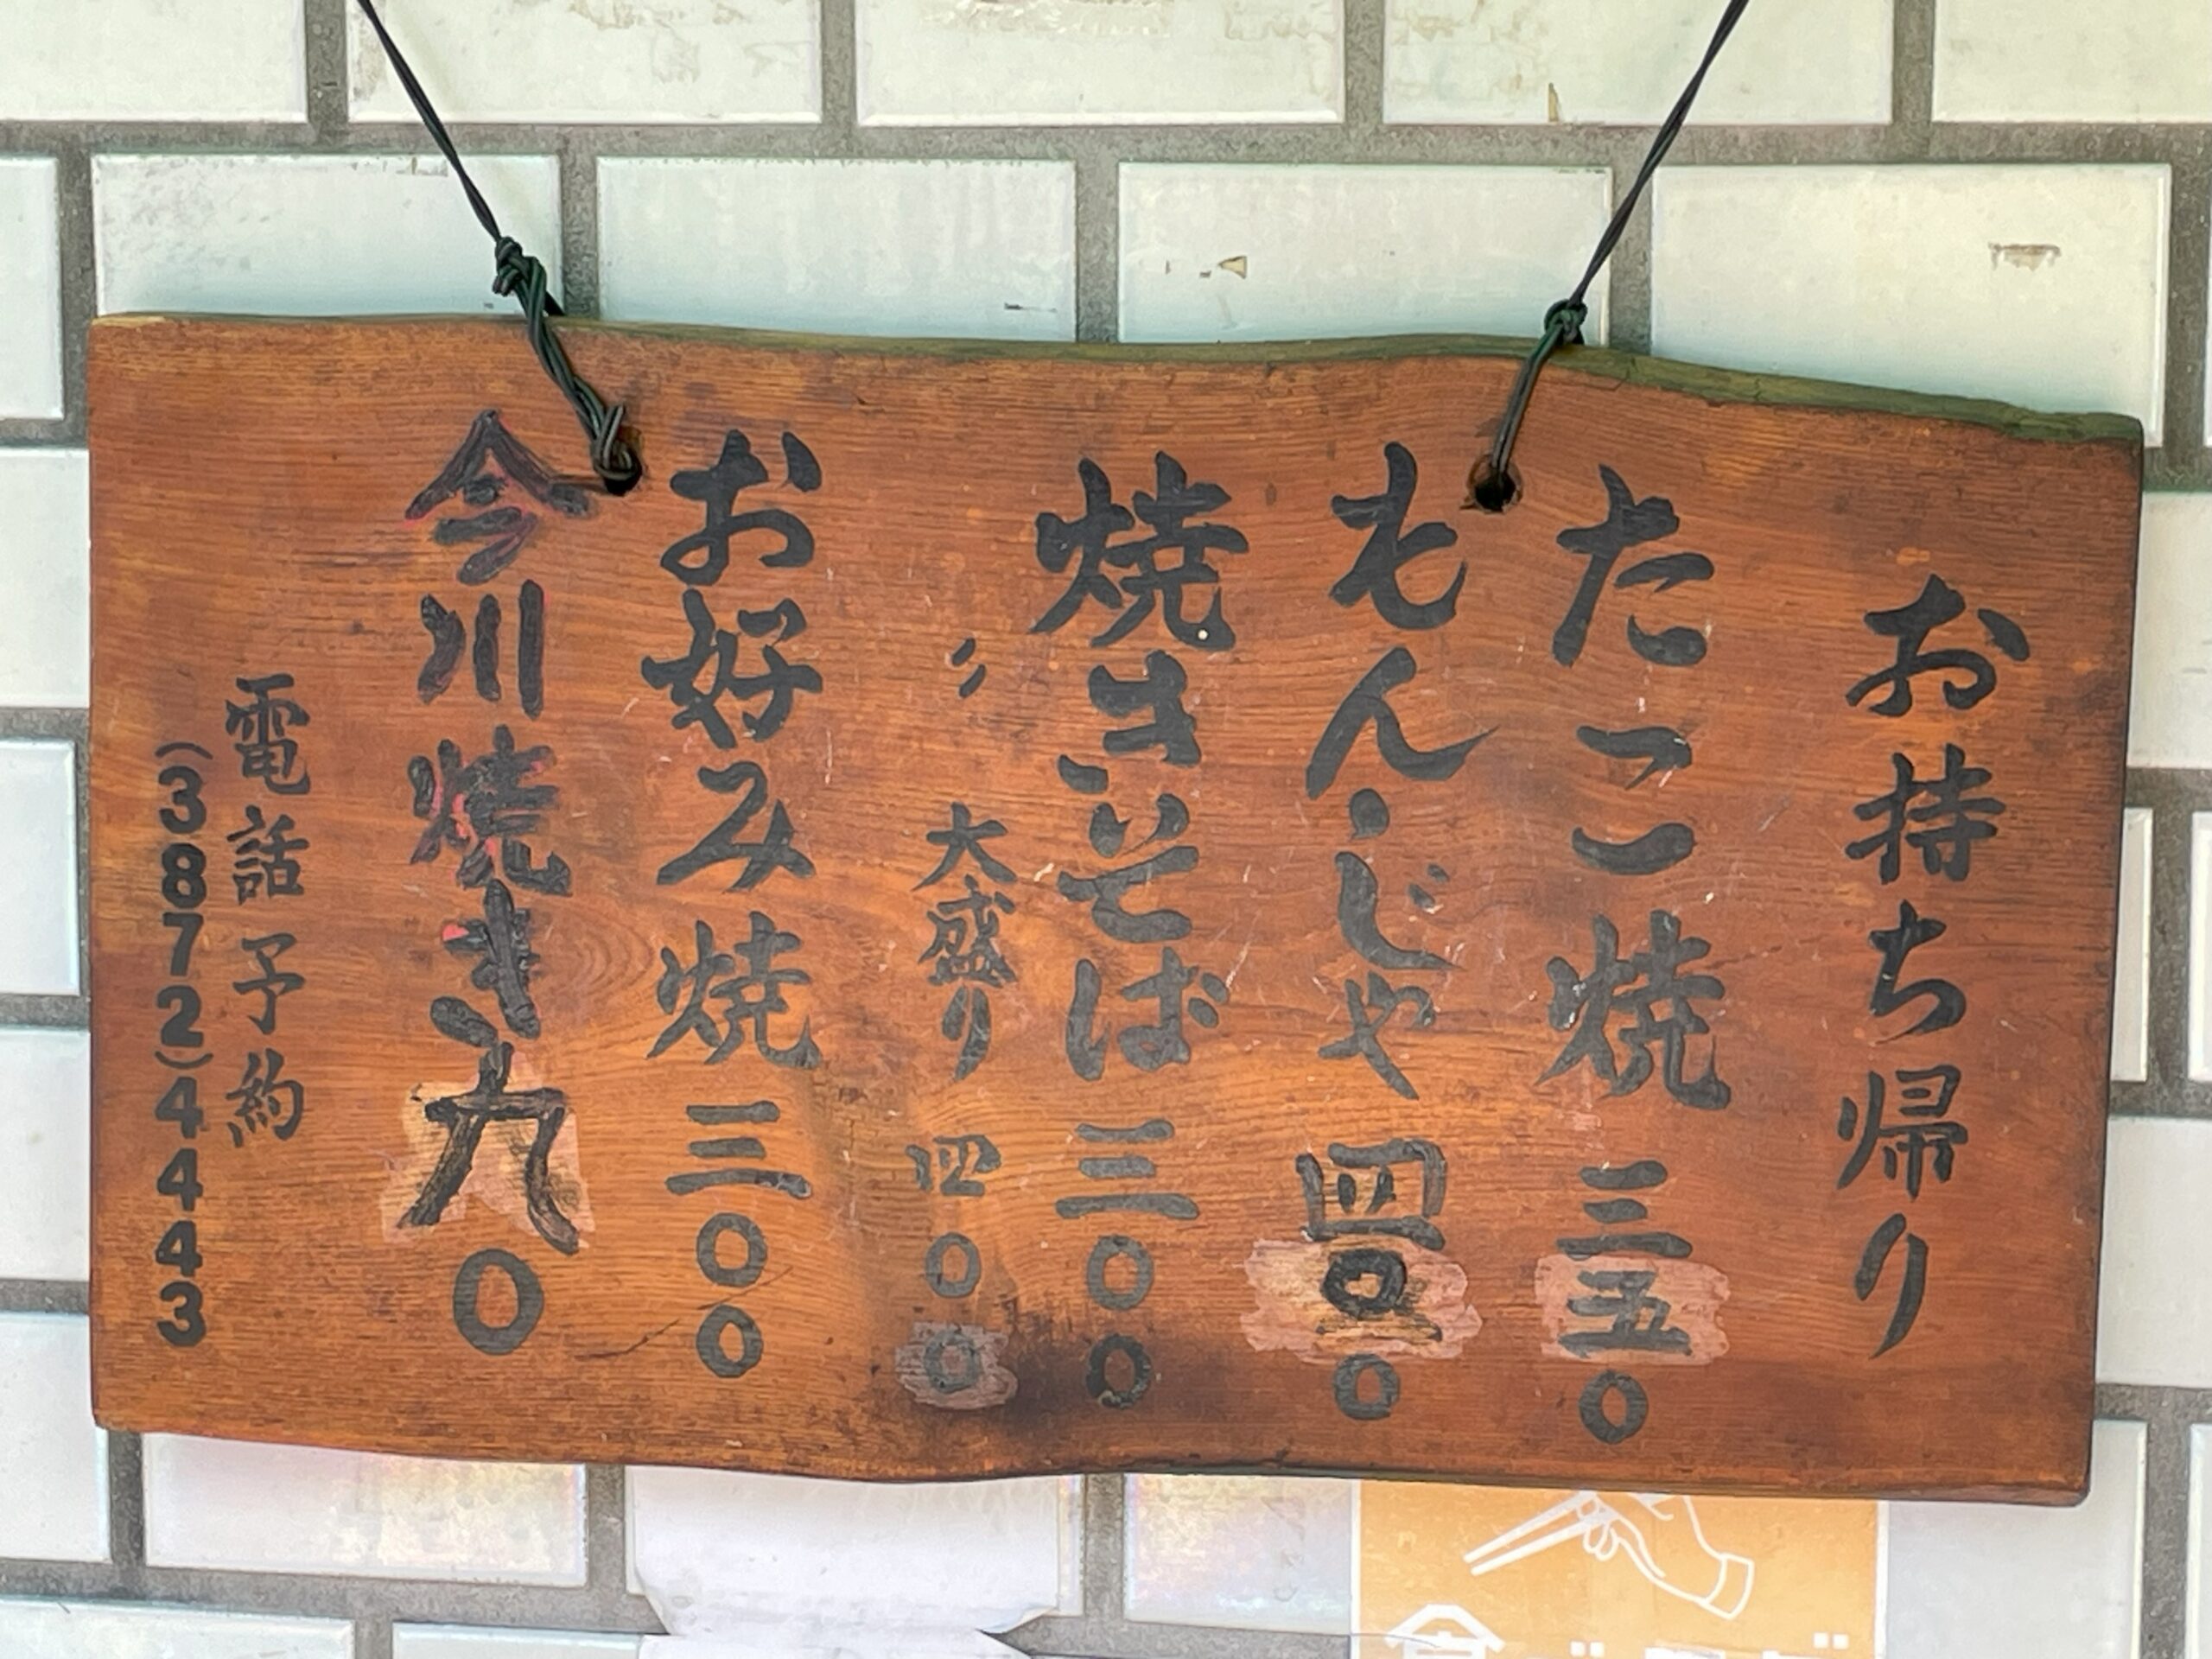 お持ち帰り
たこ焼 三五〇
もんじゃ 四〇〇
焼きそば 三〇〇
〃 大盛り 四〇〇
お好み焼 三〇〇
今川焼き 九〇
電話予約
(3872)4443